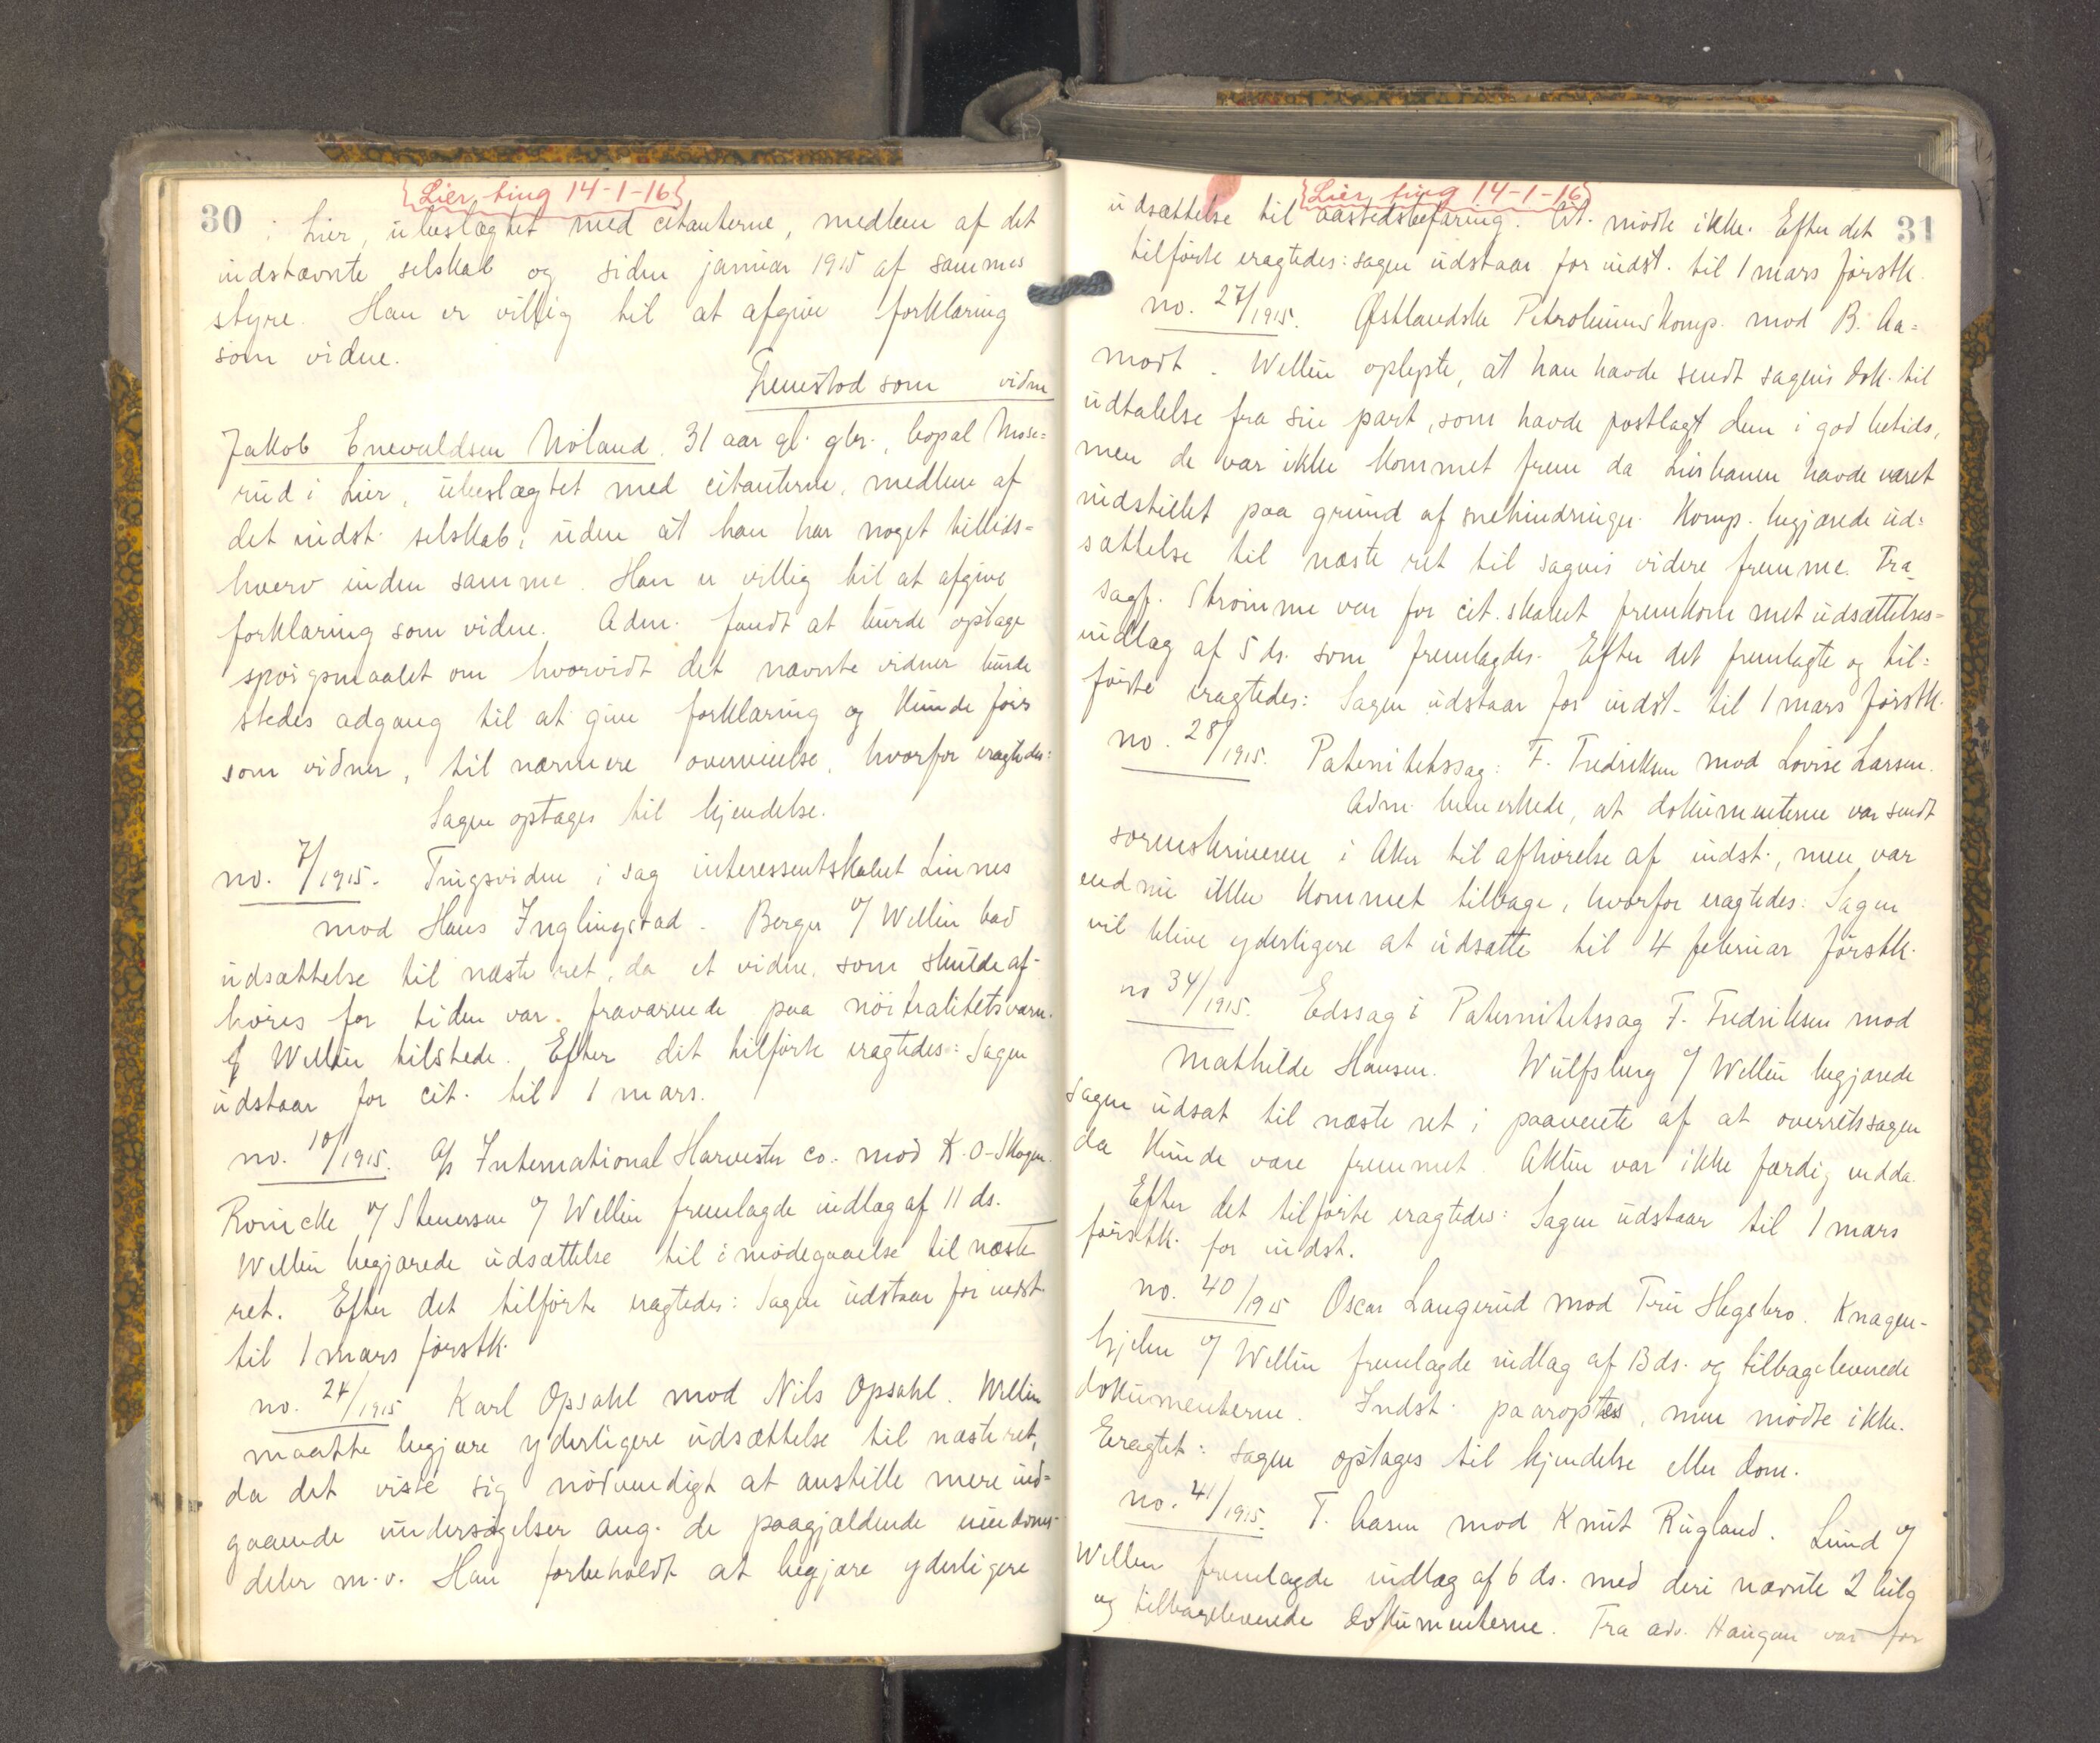 Lier ting 14-1-16
30
i Lier, ubeslægtet med citanterne, medlem af det
indstævnte selskab og siden januar 1915 af sammes
styre. Han er villig til at afgive forklaring
som vidne.
Fremstod som vidne
Jakob Enevaldsen Nöland, 31 aar gl. gbr., bopal Mose=
rud i Lier, ubeslægtet med citanterne, medlem af
det indst. selskab, uden at han har noget tillids=
hverv inden samme. Han er villig til at afgive
forklaring som vidne. Adm. fandt at burde optage
spörgsmaalet om hvorvidt det nævnte vidner burde
stedes adgang til at give forklaring og kunde föres
som vidner, til nærmere overveielse, hvorfor eragtedes:
Sagen optages til kjendelse.
no. 7/1915. Tingsvidne i sag interessentskabet Linnes
mod Hans Inglingstad. Berger v/ Wellin bad
udsættelse til næste ret, da et vidne, som skulde af-
höres for tiden var fraværende paa nöitralitetsværn.
v/ Wellin tilstede. Efter det tilförte eragtedes: Sagen
udstaar for cit. til 1 mars.
no. 10/1915. A/s International Harvester co. mod K. O. Skogen.
Ronicke v/ Stenersen v/ Wellin fremlagde indlæg af 11 ds.
Wellin begjærede udsættelse til imödegaaelse til næste
ret. Efter det tilförte eragtedes: Sagen udstaar for indst.
til 1 mars förstk.
no. 24/1915 Karl Opsahl mod Nils Opsahl. Wellin
maatte begjære yderligere udsættelse til næste ret,
da det viste sig nödvendigt at anstille mere ind=
gaaende undersögelser ang. de paagjældende eiendoms-
deler m.v. Han forbeholdt at begjære yderligere
Lier ting 14-1-16
31
udsættelse til aastedsbefaring. Cit. mödte ikke. Efter det
tilförte eragtedes: sagen udstaar for indst. til 1 mars förstk.
no. 27/1915. Østlandske Petroleums Komp. mod B. Aa=
modt. Wellin oplyste, at han havde sendt sagens dok. til
udtalelse fra sin part, som havde postlagt dem i god betids,
men de var ikke kommet frem da Lierbanen havde været
indstillet paa grund af snehindringer. Komp. begjærede ud=
sættelse til næste ret til sagens videre fremme. Fra
sagf. Strömme var for cit. skabet fremkom met udsættelses=
indlæg af 5 ds. som fremlagdes. Efter det fremlagte og til=
förte eragtedes: Sagen udstaar for indst. til 1 mars förstk.
no. 28/1915. Paternitetssag: F. Fredriksen mod Lovise Larsen.
Adm. bemerkede, at dokumenterne var sendt
sorenskriveren i Aker til afhörelse af indst., men var
endnu ikke kommet tilbage, hvorfor eragtedes: Sagen
vil blive yderligere at udsætte til 4 februar förstk.
no 34/1915. Edssag i Paternitetssag F. Fredriksen mod
Mathilde Hansen. Wulfsberg v/ Wellin begjærede
sagen udsat til næste ret i paavente af at overretssagen
da kunde være fremmet. Akten var ikke færdig endda.
Efter det tilförte eragtedes: Sagen udstaar til 1 mars
förstk. for indst.
no. 40/1915 Oscar Langerud mod Tru Hegsbro. Knagen-
hjelm v/ Wellin fremlagde indlæg af 13 ds. og tilbageleverede
dokumenterne. Indst. paaroptes, men mödte ikke.
Eragtet: sagen optages til kjendelse eller dom.
no. 41/1915. T. Aasen mod Knut Rugland. Lund v/
Wellin fremlagde indlæg af 6 ds. med deri nævnte 2 bilg
og tilbageleverede dokumenterne. Fra adv. Haugen var for